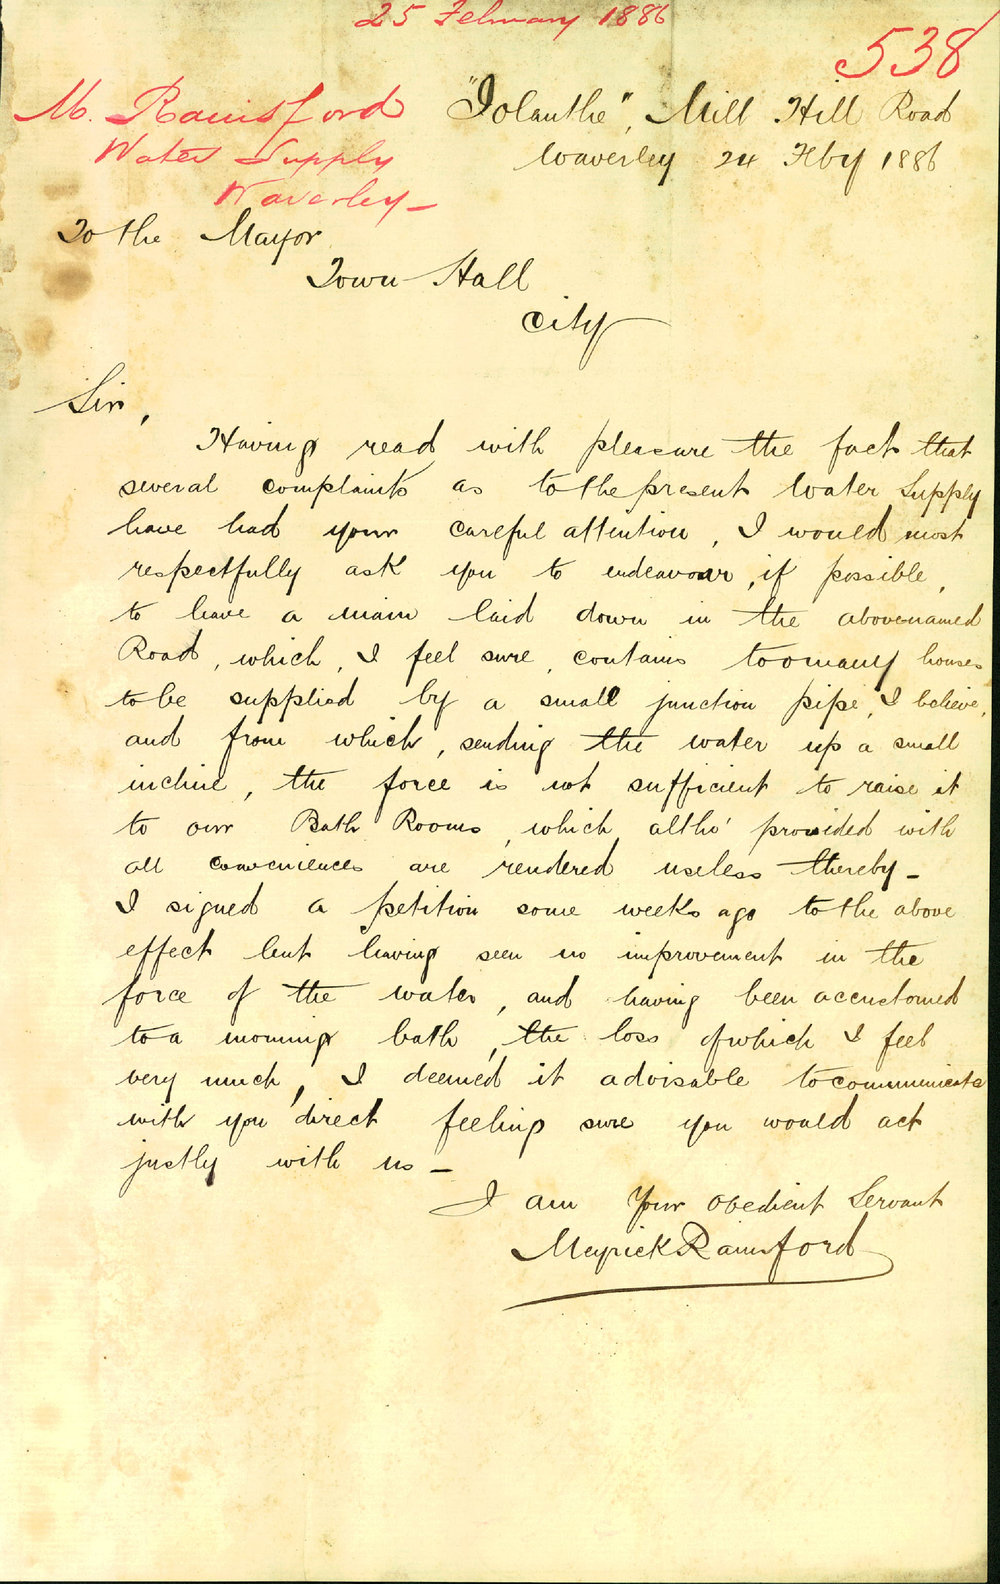 25 February 1886
538
M. Rainsford
Water Supply
Waverley—
"Iolanthe", Mill Hill Road
Waverley 24 Feby 1886
To the Mayor
Town Hall
City
Sir,
Having read with pleasure the fact that
several complaints as to the present Water Supply
have had your careful attention, I would most
respectfully ask you to endeavour, if possible,
to have a main laid down in the abovenamed
Road, which, I feel sure, contains too many houses
to be supplied by a small junction pipe, I believe,
and from which, sending the water up a small
incline, the force is not sufficient to raise it
to our Bath Rooms, which, altho' provided with
all conveniences are rendered useless thereby—
I signed a petition some weeks ago to the above
effect but having seen no improvement in the
force of the water, and having been accustomed
to a morning bath, the loss of which I feel
very much, I deemed it advisable to communicate
with you direct feeling sure you would act
justly with us—
I am Your obedient Servant
Meyrick Rainsford